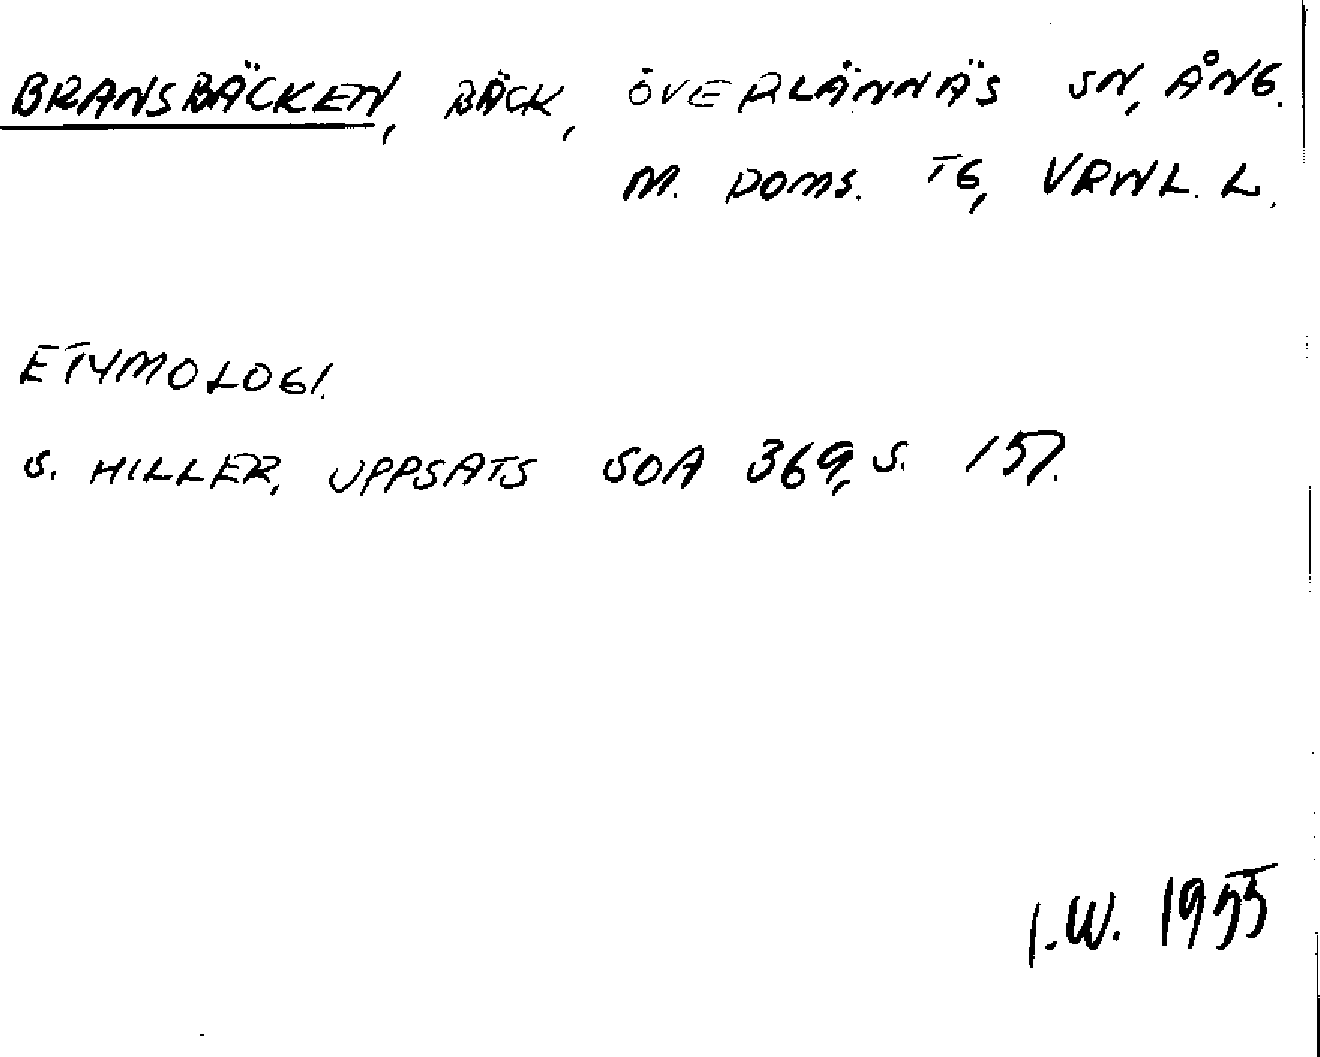 BRANSBÄCKEN, BÄCK, ÖVERLÄNNÄS SN, ÅNG.
M. DOMS. TG, VRNL. L.
ETYMOLOGI.
S. HILLER, UPPSATS SOA 369, S. 157.
I.W. 1955